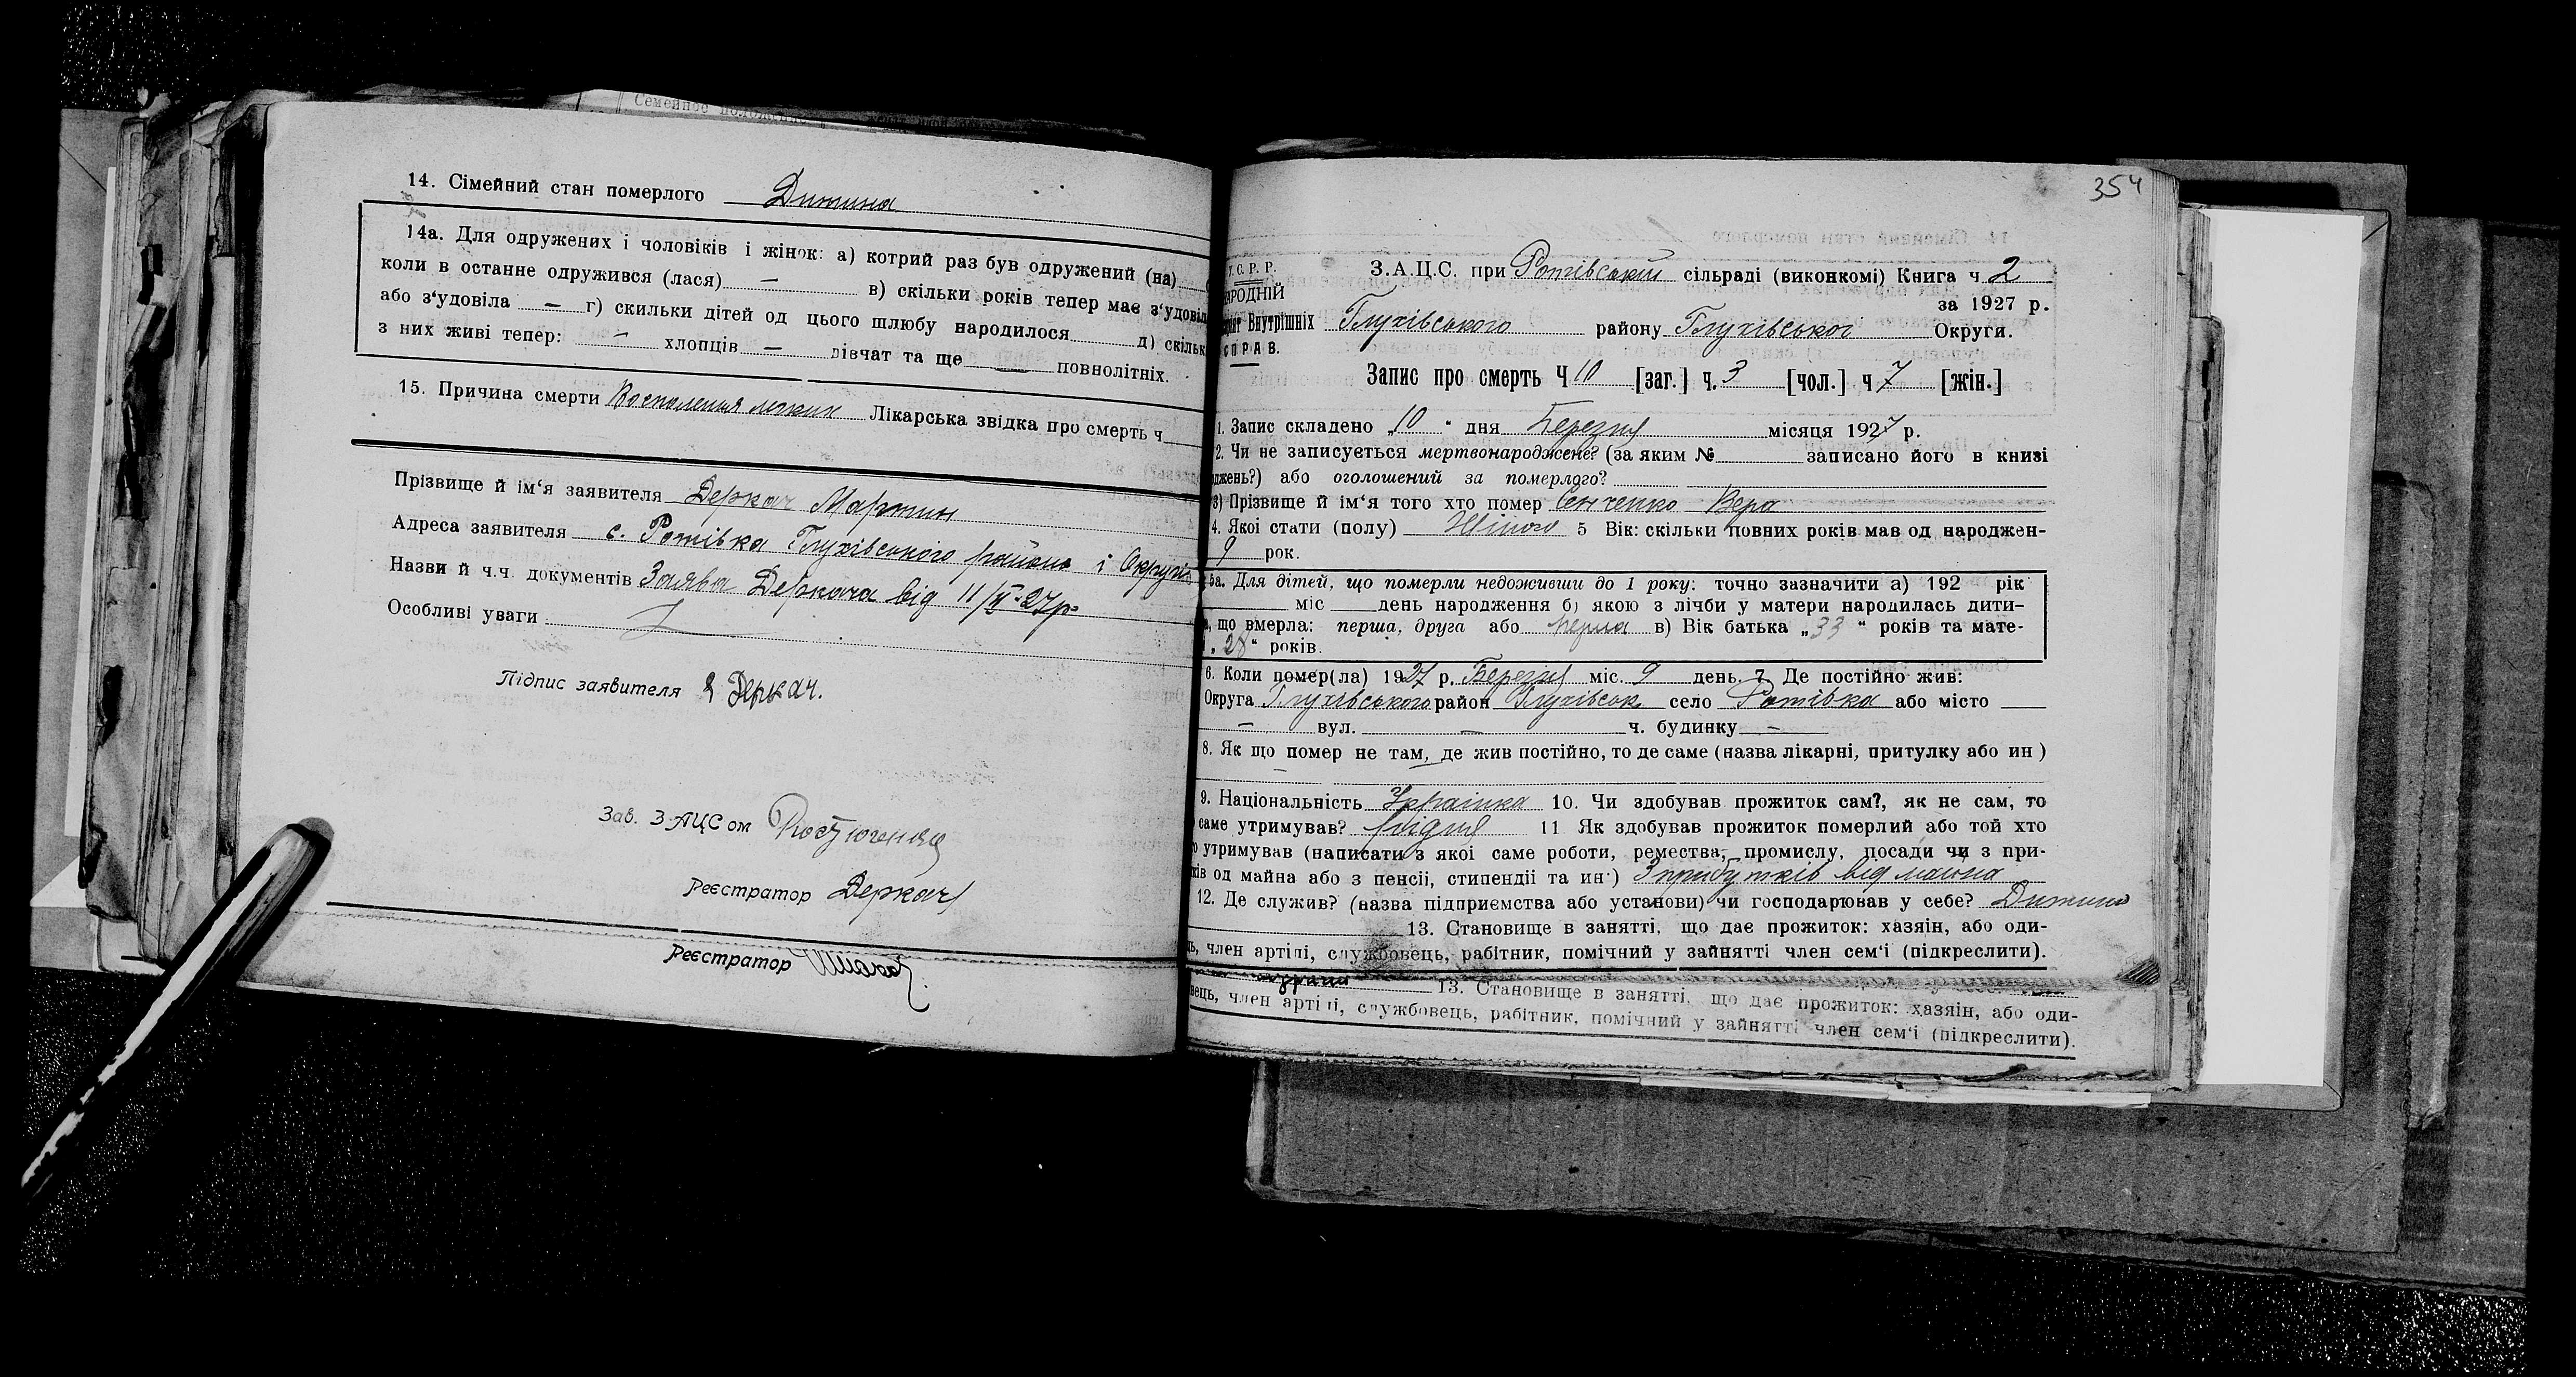 Семейное положение
14. Сімейний стан померлого Дитина
14а. Для одружених і чоловіків і жінок: а) котрий раз був одружений (на)
коли в останне одружився (лася) — в) скільки років тепер має з'удовів
або з'удовіла — г) скильки дітей од цього шлюбу народилося д) скільк
з них живі тепер: — хлопців — дівчат та ще — повнолітніх.
15. Причина смерти Воспаления легких Лікарська звідка про смерть ч
Прізвище й ім'я заявителя Деркач Мартин
Адреса заявителя с. Ротівка Глухівського району і Округи
Назви й ч.ч. документів Заява Деркача від 11/ -27р
Особливі уваги
Підпис заявителя Деркач.
Зав. ЗАЦСом
Реєстратор Деркач
Реєстратор
354
У.С.Р.Р.
АРОДНІЙ
Внутрішніх
СПРАВ.
З.А.Ц.С. при Ротівський сільраді (виконкомі) Книга ч 2
за 1927 р.
Глухівського району Глухівської Округи.
Запис про смерть Ч 10 [заг.] ч. 3 [чол.] ч 7 [жін.]
1. Запис складено „10" дня Березня місяця 1927 р.
2. Чи не записується мертвонароджене? (за яким № записано його в книзі
оджень?) або оголошений за померлого?
3) Прізвище й ім'я того хто помер Сенченко Вера
4. Якоі стати (полу) Жіного 5 Вік: скільки повних років мав од народжен-
9 рок.
5а. Для дітей, що померли недоживши до 1 року: точно зазначити а) 192 рік
міс день народження б) якою з лічби у матери народилась дити-
, що вмерла: перша, друга або перша в) Вік батька „33" років та мате-
„28" років.
6. Коли помер(ла) 1927 р. Березня міс. 9 день. 7. Де постійно жив:
Округа Глухівського район Глухівськ село Ротівка або місто
— вул. — ч. будинку —
8. Як що помер не там, де жив постійно, то де саме (назва лікарні, притулку або ин)
9. Національність Українка 10. Чи здобував прожиток сам?, як не сам, то
саме утримував? рідня 11 Як здобував прожиток померлий або той хто
о утримував (написати з якоі саме роботи, ремества, промислу, посади чи з при-
ків од майна або з пенсіі, стипендіі та ин.) З прибутків від майна
12. Де служив? (назва підприємства або установи) чи господарював у себе? Дитина
13. Становище в занятті, що дає прожиток: хазяін, або оди-
ць, член артілі, службовець, рабітник, помічний у зайнятті член сем'і (підкреслити).
13. Становище в занятті, що дає прожиток: хазяін, або оди-
вець, член артілі, службовець, рабітник, помічний у зайнятті член сем'і (підкреслити).